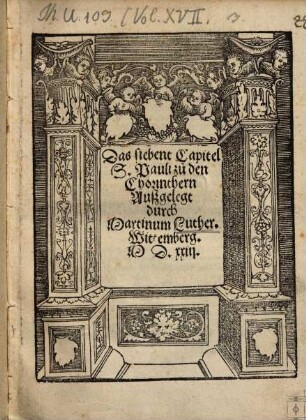 Th. U. 103. [Vol. XVII. 3.
Das siebent Capitel
S. Pauli zů den
Chorinthern
Außgelegt
durch
Martinum Luther.
Wittemberg.
M D. xxiij.